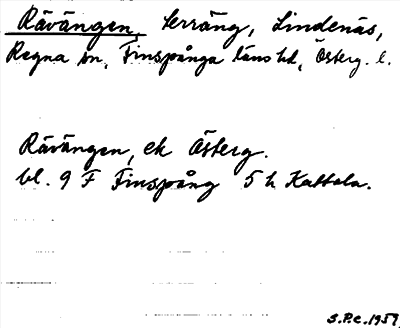 Rävängen, terräng, Lindenäs,
Regna sn, Finspånga läns hd, Österg. l.
Rävängen, ek Österg.
bl. 9 F Finspång 5 h Kattala.
S.P.C. 1957